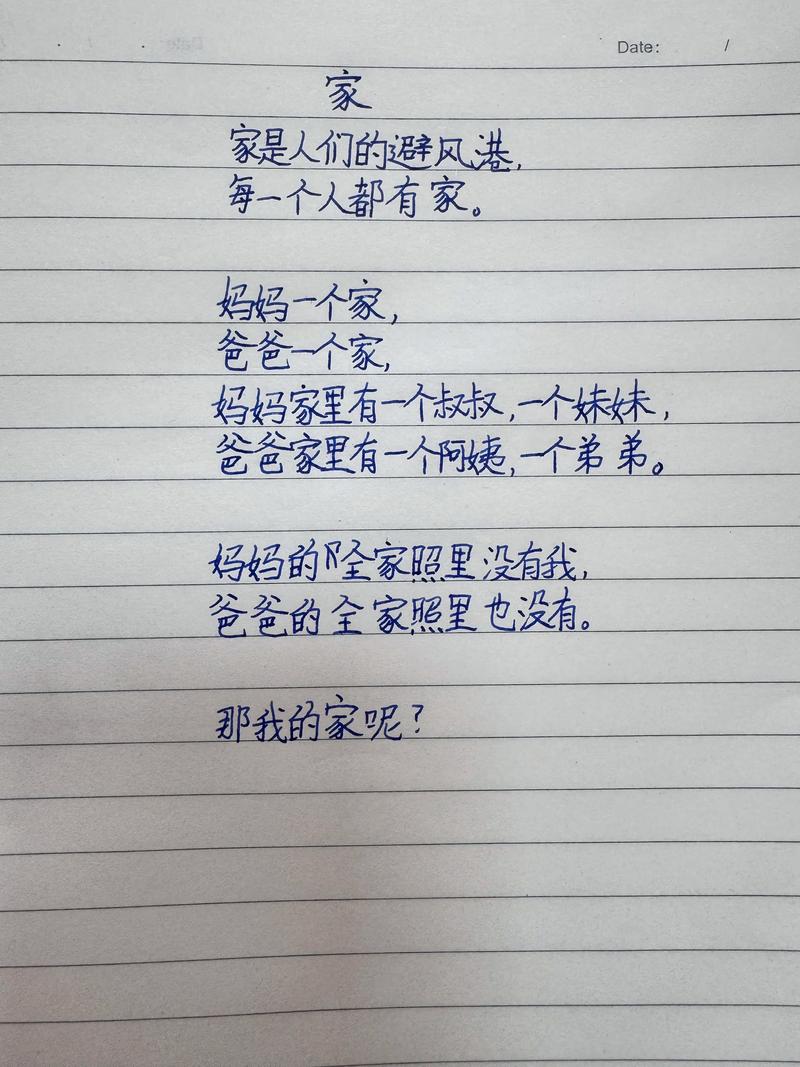 Date: /
家
家是人们的避风港,
每一个人都有家。
妈妈一个家,
爸爸一个家,
妈妈家里有一个叔叔,一个妹妹,
爸爸家里有一个阿姨,一个弟弟。
妈妈的全家照里没有我,
爸爸的全家照里也没有。
那我的家呢?